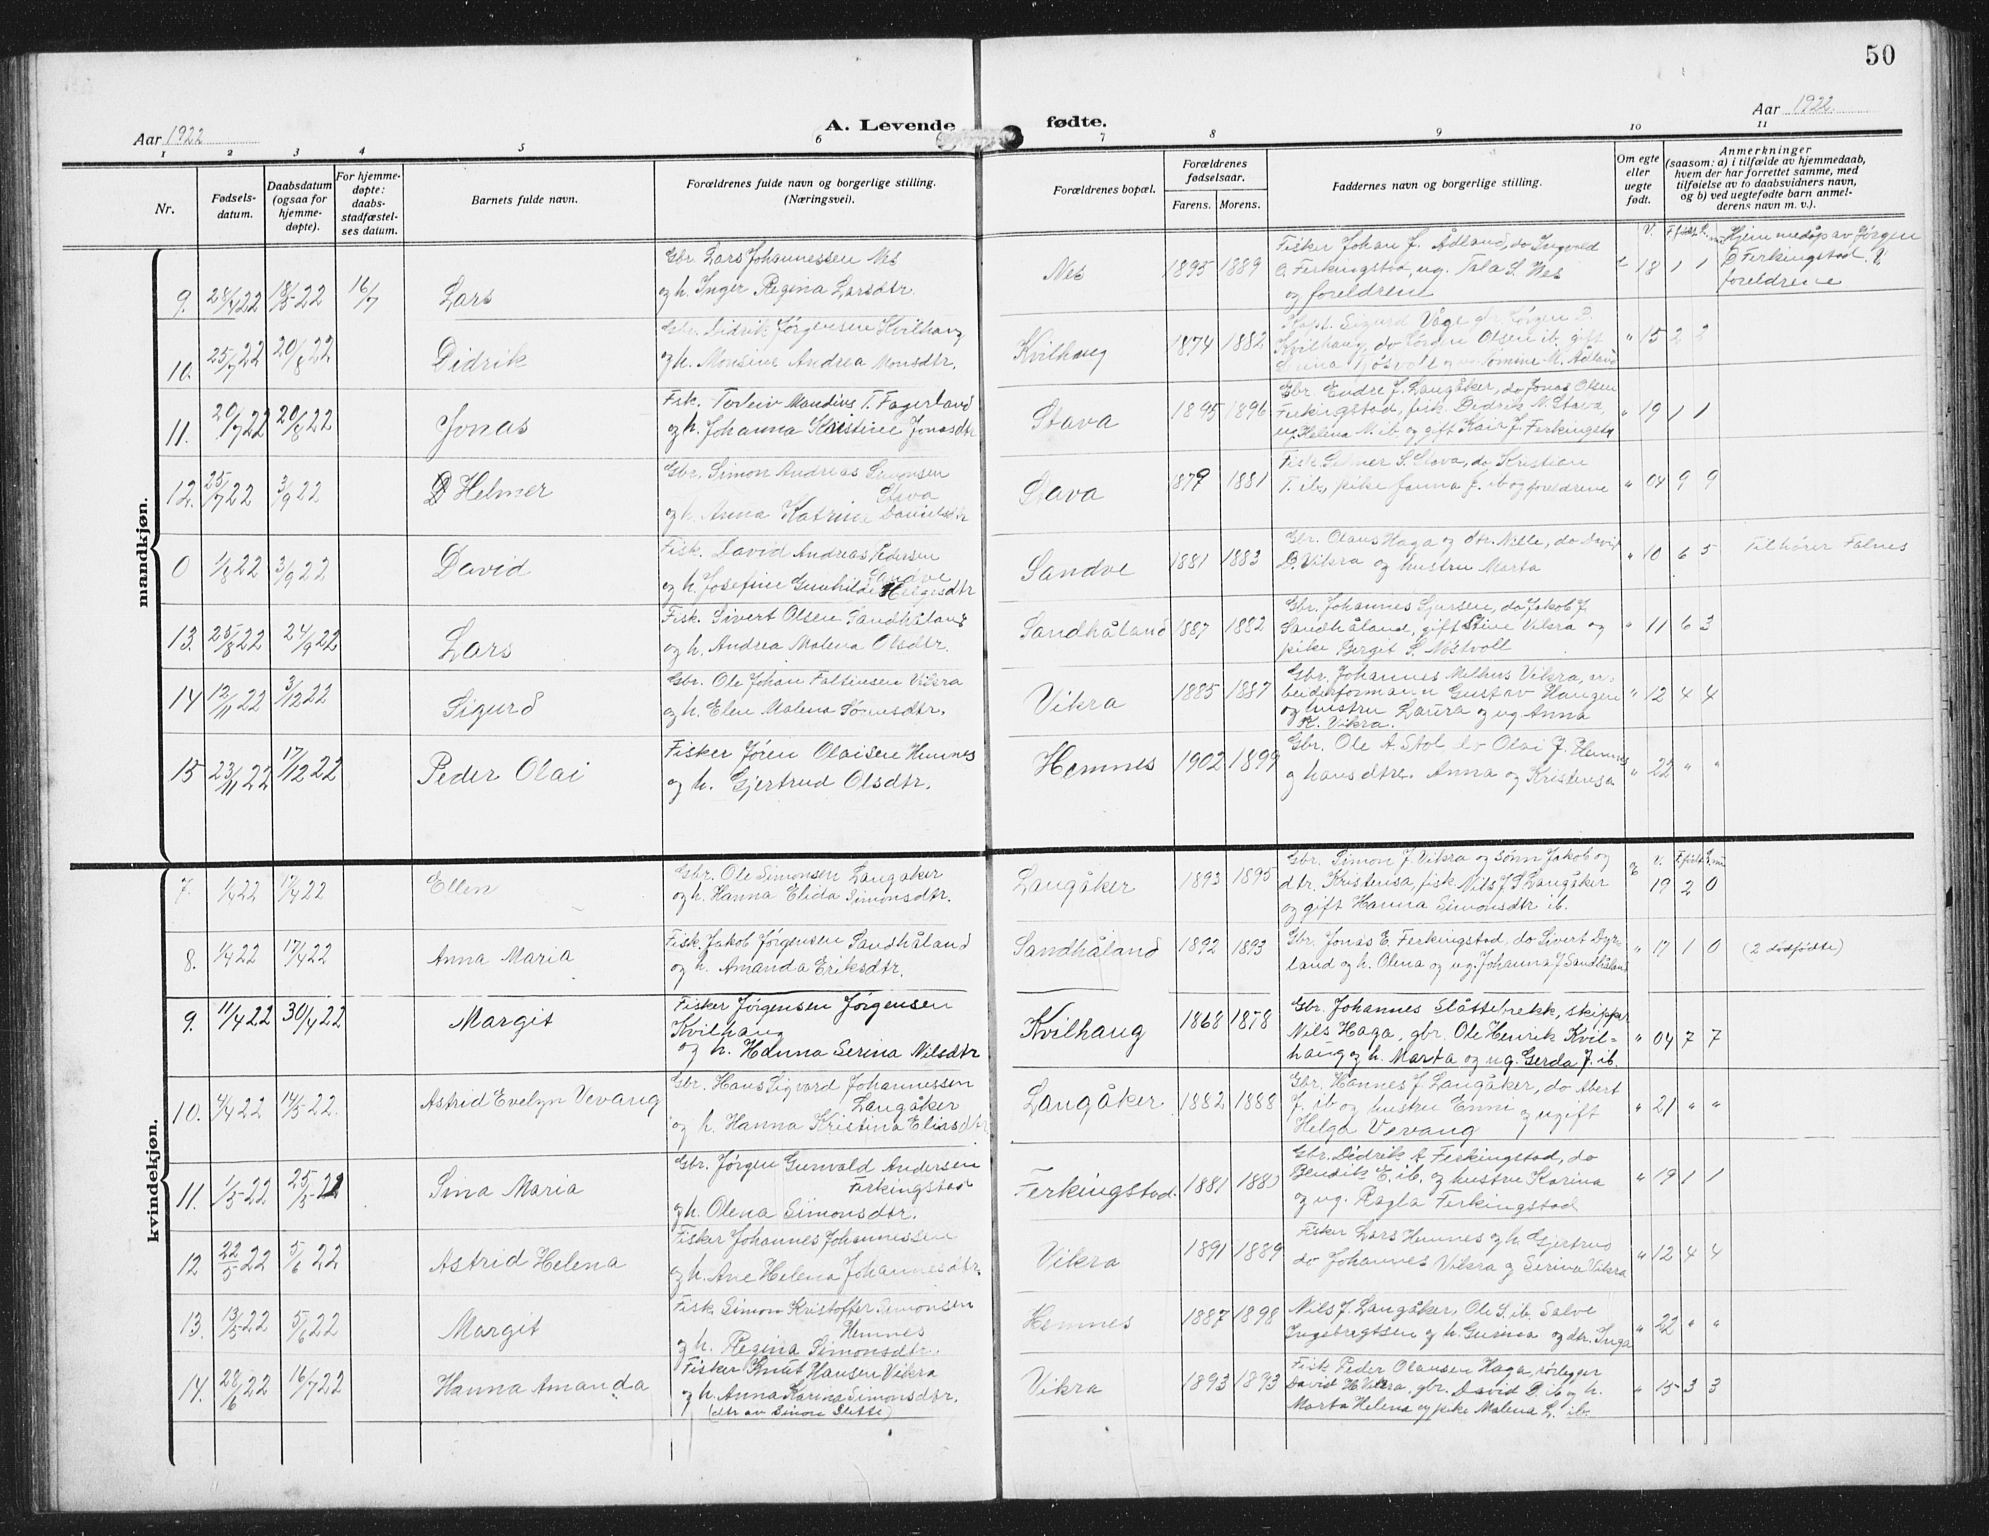 50
Aar 1922
A. Levende fødte.
Aar 1922.
1 2 3 4 5 6 7 8 9 10 11
Nr.
Fødsels-
datum.
Daabsdatum
(ogsaa for
hjemme-
døpte).
For hjemme-
døpte:
daabs-
stadfæstel-
ses datum.
Barnets fulde navn.
Forældrenes fulde navn og borgerlige stilling.
(Næringsvei).
Forældrenes bopæl.
Forældrenes
fødselsaar.
Farens. Morens.
Faddernes navn og borgerlige stilling.
Om egte
eller
uegte
født.
Anmerkninger
(saasom: a) i tilfælde av hjemmedaab,
hvem der har forrettet samme, med
tilføielse av to daabsvidners navn,
og b) ved uegtefødte barn anmel-
derens navn m. v.).
mandkjøn.
9. 28/4 22 18/5-22 16/7 Lars
Gbr. Lars Johannessen Nes
og h. Inger Regina Larsdtr.
Nes 1895 1889
Fisker Johan J. Ådland, do Ingvald
O. Ferkingstad, ug. Tala S. Nes
og foreldrene
18 1 1
Hjemmedåp av Jørgen
D Ferkingstad. V.
foreldrene
10. 25/7 22 20/8 22 Didrik
Gbr. Didrik Jørgensen Kvilhaug
og h. Monsine Andrea Monsdtr.
Kvilhaug 1874 1882
Kapt. Sigurd Våge gbr. Jørgen D.
Kvilhaug, do Jørgen Olsen ib. gift
" 15 2 2
11. 20/7 22 20/8 22 Jonas
Fsk. Torleiv Mandius T. Fagerland
og h. Johanna Kristine Jonasdtr
Stava 1895 1896
Gbr. Endre J. Langåker, do Jonas Olsen
Ferkingstad, fisk. Didrik N. Stava,
ug. Helena M. ib og gift Kari J. Ferkingst.
" 19 1 1
12. 25/7 22 3/9 22 Helmer
Gbr. Simon Andreas Simonsen
Stava
og h. Anna Katrine Danielsdtr
Stava 1879 1881
Fisk. Selmer S. Stava, do Kristian
T. ib, pike Janna J. ib og foreldrene
" 04 9 9
0 1/8 22 3/9 22 David
Fisk. David Andreas Pedersen
Sandve
og h. Josefine Gunhilde Helgesdtr
Sandve 1881 1883
Gbr. Olaus Haga og dtr. Nille, do David
D. Vikra og hustru Marta
" 10 6 5 Tilhører Falnes
13. 25/8 22 24/9 22 Lars
Fisk. Sivert Olsen Sandhåland
og h. Andrea Malena Olsdtr.
Sandhåland 1887 1882
Gbr. Johannes Sjursen, do Jakob J.
Sandhåland, gift Stine Vikra og
pike Bergit S. Nøstvoll
" 11 6 3
14 12/11 22 3/12 22 Sigurd
Gbr. Ole Johan Faltinsen Vikra
og h. Elen Malena Sørensdtr.
Vikra 1885 1887
Gbr. Johannes Melhus Vikra, ar-
beiderformann Gustav Haugen
og hustru Laura og ug Anna
K. Vikra.
" 12 4 4
15 23/11 22 17/12 22 Peder Olai
Fisker Jøren Olaisen Hemnes
og h. Gjertrud Olsdtr.
Hemnes 1902 1899
Gbr. Ole A. Stol do Olai J. Hemnes
og hans dtre. Anna og Kristensa
" 22 " "
kvindekjøn.
7. 1/4 22 17/4 22 Ellen
Gbr. Ole Simonsen Langåker
og h. Hanna Elida Simonsdtr.
Langåker 1893 1895
Gbr. Simon J. Vikra og sønn Jakob og
dtr. Kristensa, fisk. Nils J S Langåker
og gift Hanna Simonsdtr ib.
19 2 0
8. 1/4 22 17/4 22 Anna Maria
Fisk. Jakob Jørgensen Sandhåland
og h. Amanda Eriksdtr.
Sandhåland 1892 1893
Gbr. Jonas E. Ferkingstad, do Sivert Dyr-
land og h. Olena og ug. Johanna J Sandhåland
" 17 1 0 (2 dødfødte)
9. 11/4 22 30/4 22 Margit
Fisker Jørgensen Jørgensen
Kvilhaug
og h. Hanna Serina Nilsdtr
Kvilhaug 1868 1878
Gbr. Johannes Slåttebrekk, skipper
Nils Haga, gbr. Ole Henrik Kvil-
haug og h. Marta og ug. Gerda J. ib.
" 04 7 7
10. 4/4 22 14/5-22. Astrid Evelyn Vevang
Gbr. Hans Sigvard Johannessen
Langåker
og h. Hanna Kristina Eliasdtr
Langåker 1882 1888
Gbr. Hannes J. Langåker, do Abert
J. ib og hustru Enni og ugift
Helga Vevang
" 21 " "
11. 1/5-22 25/5-22 Sina Maria
Gbr. Jørgen Gunvald Andersen
Ferkingstad
og h. Olena Simonsdtr.
Ferkingstad. 1881
Gbr. Didrik A Ferkingstad, do
Bendik E. ib. og hustru Karina
og ug. Ragla Ferkingstad
" 19 1 1
12 22/5 22 5/6 22 Astrid Helena
Fisker Johannes Johannessen
og h. Ane Helena Johannesdtr.
Vikra 1891 1889
Fisker Lars Hemnes og h. Gjertrud
do Johannes Vikra og Serina Vikra
" 12 4 4
13. 13/5 22 5/6 22 Margit
Fisk. Simon Kristoffer Simonsen
Hemnes
og h. Regina Simonsdtr.
Hemnes 1887 1898
Nils J. Langåker, Ole S. ib. Salve
Ingebregtsen og h. Gurina og dtr. Inga
" 22 " "
14. 28/6 22 16/7 22 Hanna Amanda
Fisker Knut Hansen Vikra
og h. Anna Karina Simonsdtr.
(dtr av Simon Slette)
Vikra 1893 1893
Fisk Peder Olausen Haga, rørlegger
David H. Vikra, gbr. David D. ib og h.
Marta Helena og pike Malena L. ib.
" 15 3 3